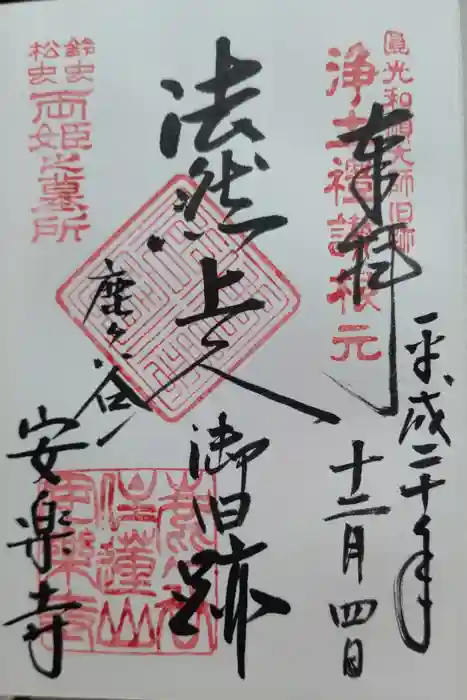 圓光和順大師旧跡
浄土禮讃根元
奉拝
平成二十年
十二月四日
法然上人
御旧跡
鈴虫
松虫
両姫之墓所
鹿ヶ谷
安楽寺
住蓮山
安樂寺